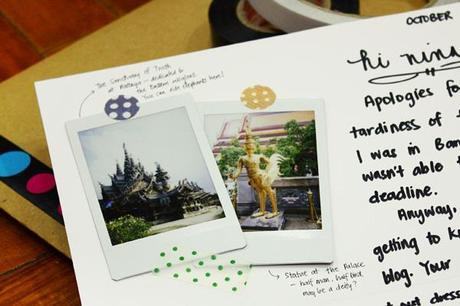 OCTOBER
hi nina
Apologies fo
tardiness of t
I was in Ban
wasn't able t
deadline.
Anyway,
getting to k
blog. Your
dres
The Sanctuary of Truth
at Pattaya – dedicated to
the Eastern religions.
You can ride elephants here!
Statue at the Palace
– half man, half bird
may be a deity?